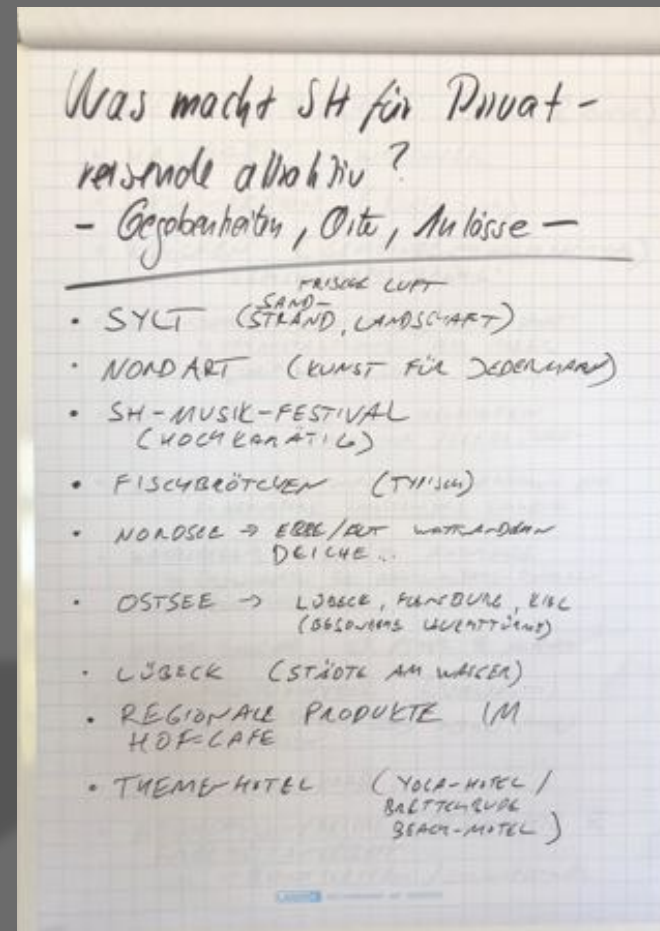 Was macht SH für Privat-
reisende attraktiv?
- Gegebenheiten, Orte, Anlässe -
FRISCHE LUFT
• SYLT (SAND-
STRAND, LANDSCHAFT)
• NORDART (KUNST FÜR JEDERMANN)
• SH-MUSIK-FESTIVAL
(HOCHKARÄTIG)
• FISCHBRÖTCHEN (TYPISCH)
• NORDSEE → EBBE/FLUT WATTWANDERN
DEICHE...
• OSTSEE → LÜBECK, FLENSBURG, KIEL
(BESONDERS LEUCHTTÜRME)
• LÜBECK (STÄDTE AM WASSER)
• REGIONALE PRODUKTE IM
HOF-CAFE
• THEME-HOTEL (YOGA-HOTEL /
BRETTERBUDE
BEACH-MOTEL)